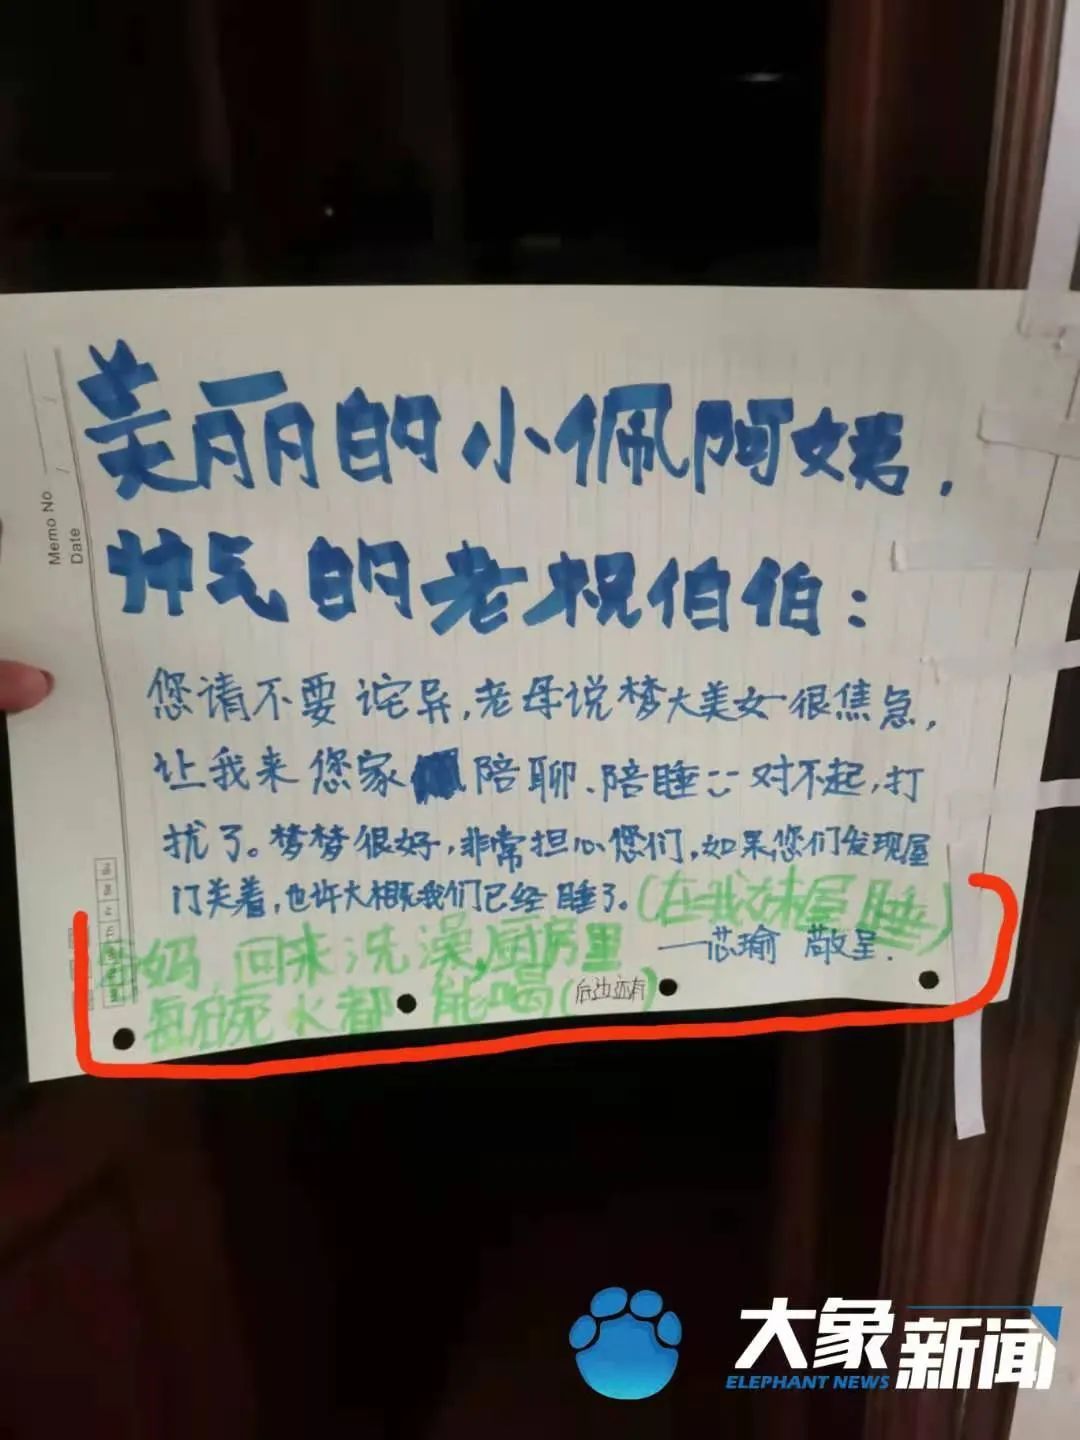 Memo No
Date
美丽的小佩阿姨，
帅气的老祝伯伯：
您请不要诧异，老母说梦大美女很焦急，
让我来您家陪聊、陪睡:-) 对不起，打
扰了。梦梦很好，非常担心您们，如果您们发现屋
门关着，也许大概我们已经睡了。(在我妹屋睡)
——芯瑜 敬呈.
妈，回来洗澡，厨房里
每碗水都能喝(后边还有)
大象新闻
ELEPHANT NEWS